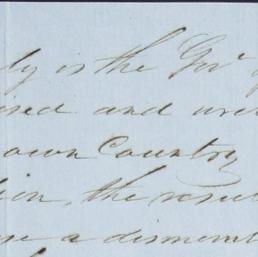 ly is the Gov^r
ised and
own Country
tion, the resul
se a dismemb